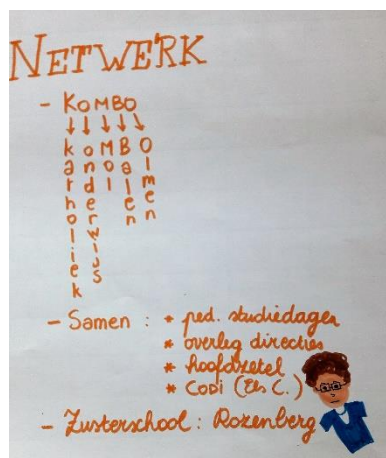 NETWERK
- KOMBO
katholiek
onderwijs
Mol
Balen
Olmen
- Samen : * ped. studiedagen
* overleg directies
* hoofdzetel
* Codi (Els C.)
- Zusterschool : Rozenberg